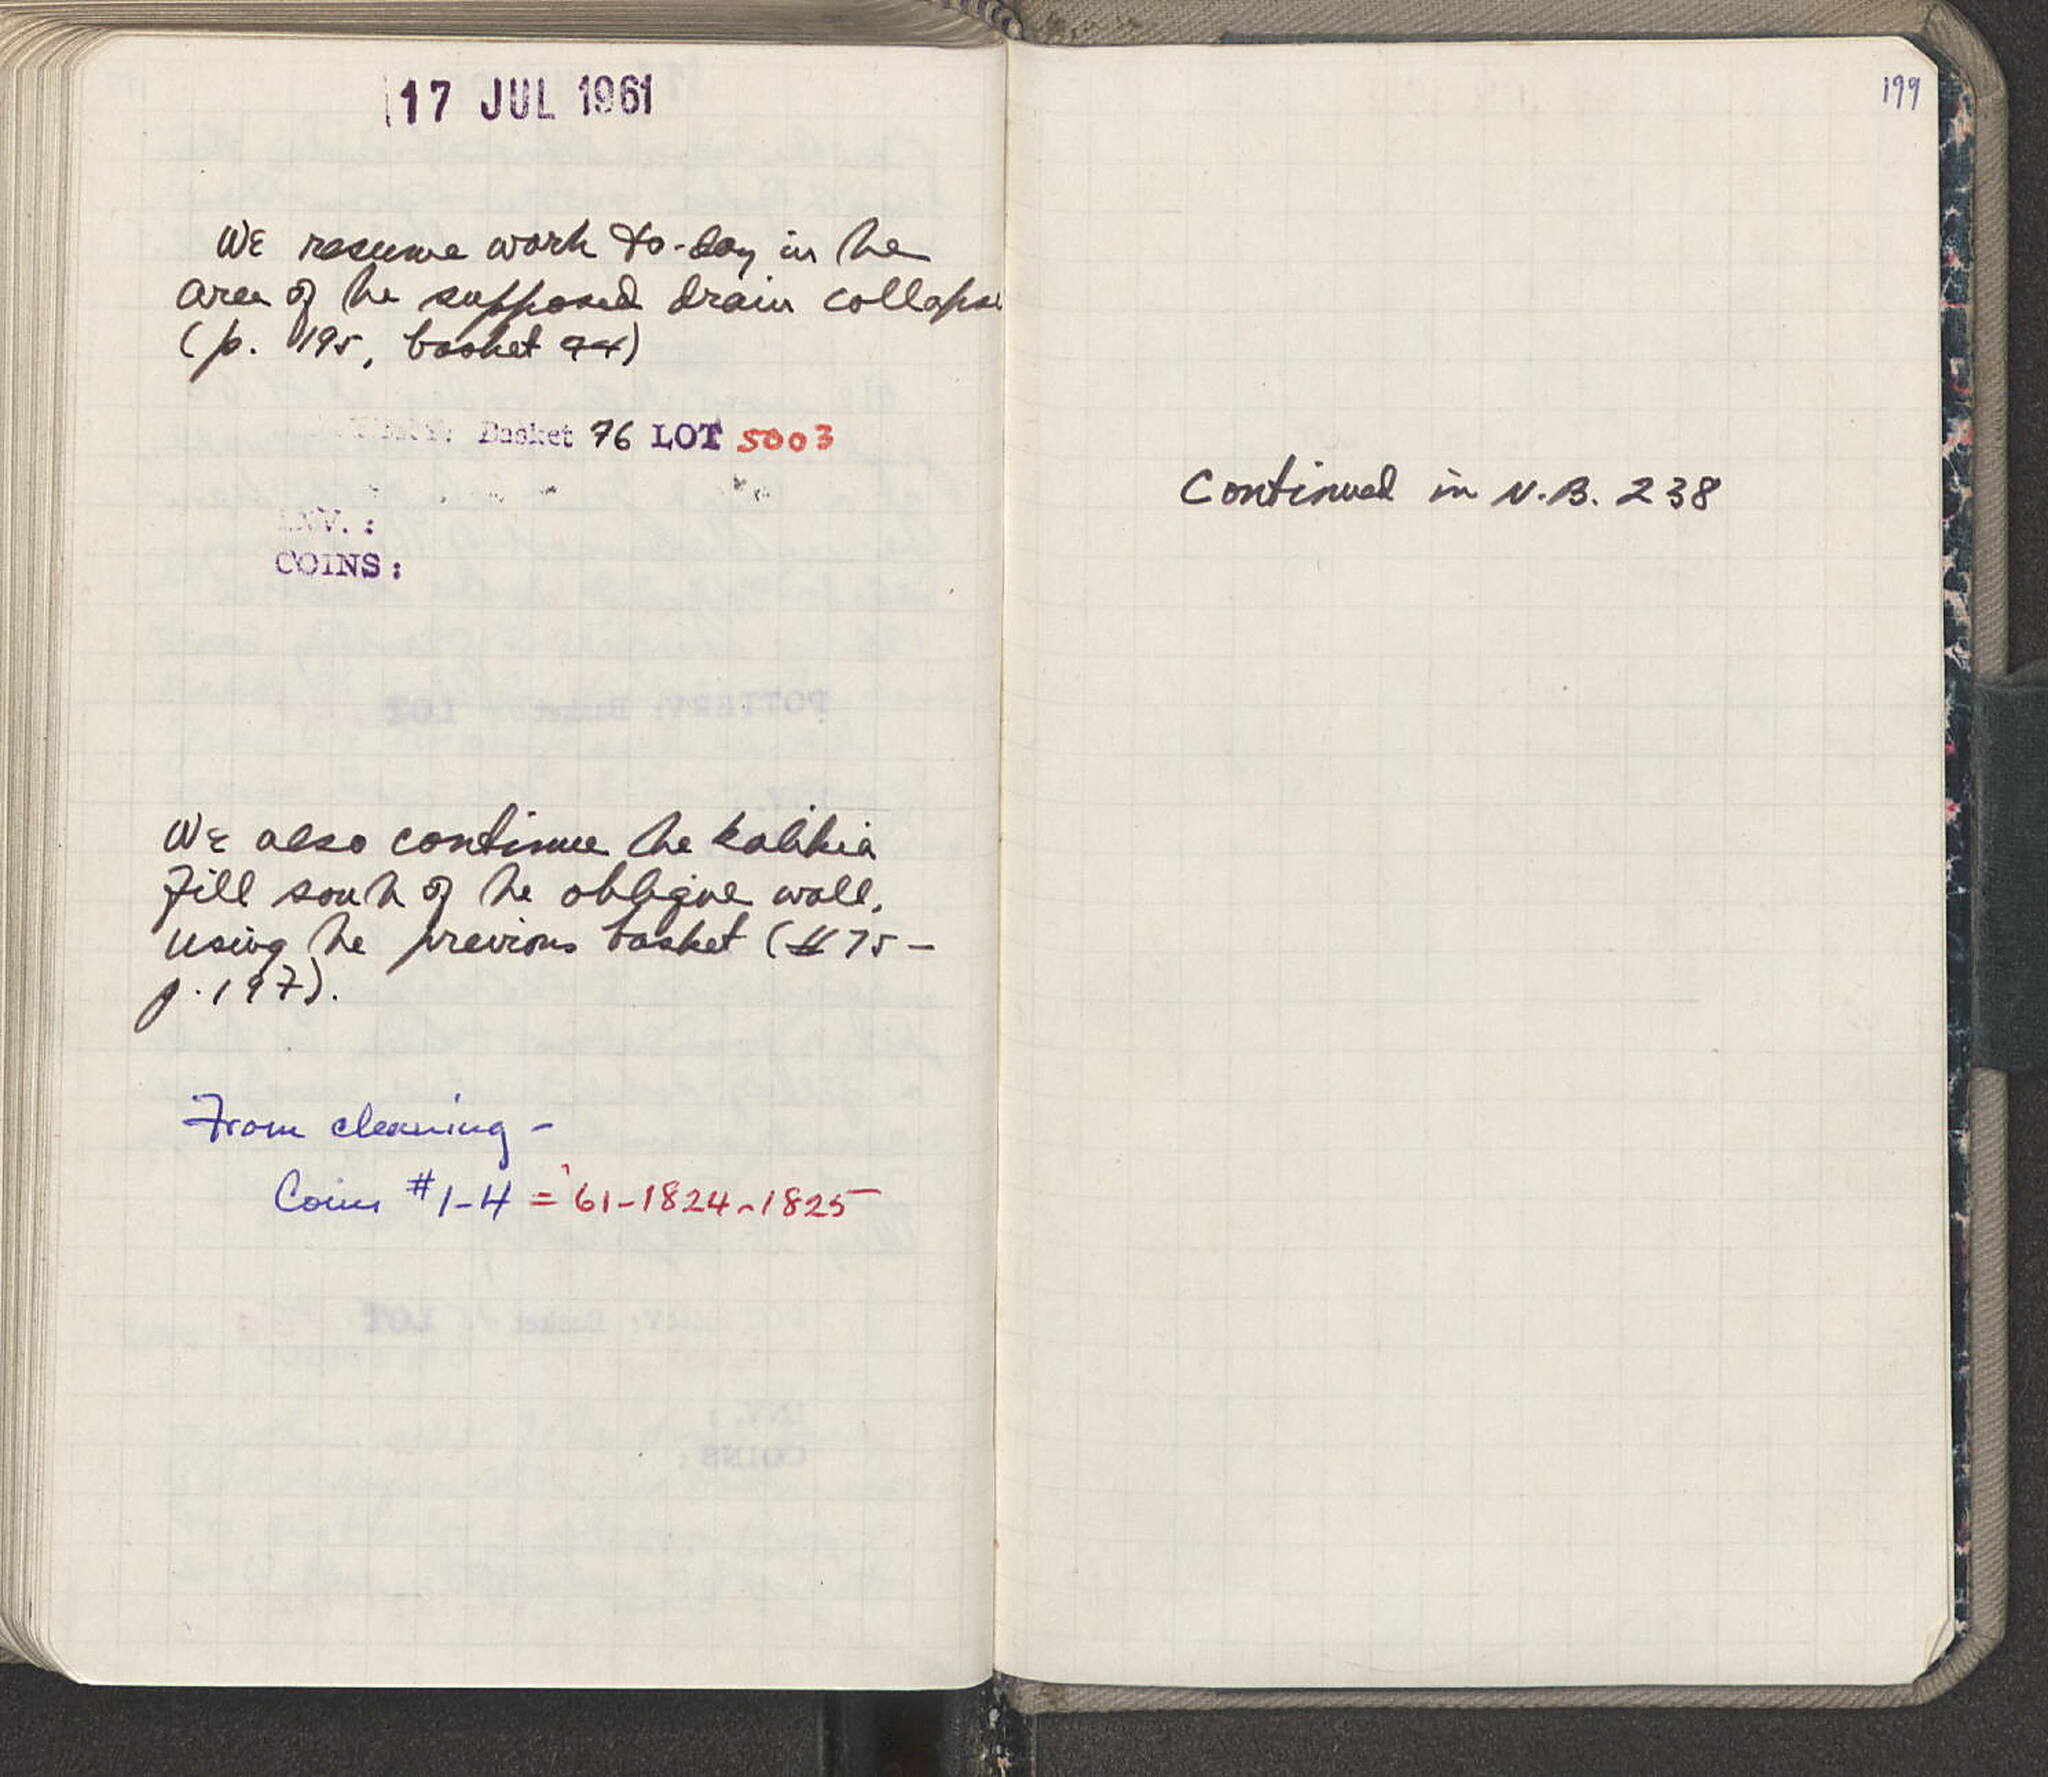 17 JUL 1961
We resume work to-day in the
area of the supposed drain collapse
(p. 195, basket 74)
Basket 76 LOT 5003
INV. :
COINS :
We also continue the kalikia
fill south of the oblique wall,
using the previous basket (#75 –
p. 197).
From cleaning –
Coins #1-4 = '61-1824-1825
199
Continued in N.B. 238